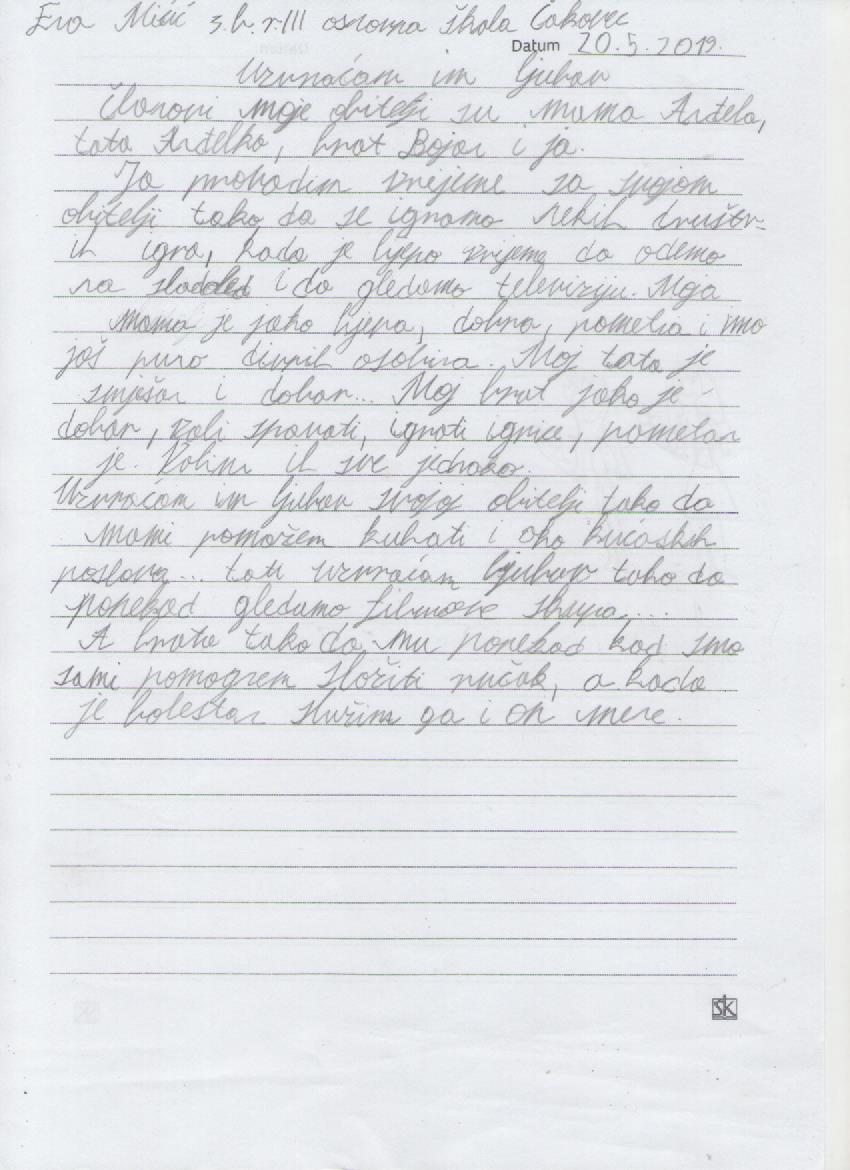 Eva Mičić 3. b. r. III osnovna škola Čakovec
Datum 20.5.2019.
Uzvraćam im ljubav
Članovi moje obitelji su mama Anđela,
tata Anđelko, brat Bojan i ja.
Ja provodim vrijeme sa svojom
obitelji tako da se igramo nekih društv-
ih igra, kada je ljepo vrijeme da odemo
na sladoled i da gledamo televiziju. Moja
mama je jako ljepa, dobra, pametna i ima
još puno divnih osobina. Moj tata je
smješan i dobar... Moj brat jako je
dobar, voli spavati, igrati igrice, pametan
je. Volim ih sve jednako.
Uzvraćam im ljubav svojoj obitelji tako da
mami pomažem kuhati i oko kućaskih
poslova... tati uzvraćam ljubav tako da
ponekad gledamo filmove skupa,...
A bratu tako da mu ponekad kad smo
sami pomognem složiti ručak, a kada
je bolestan služim ga i on mene.
SK